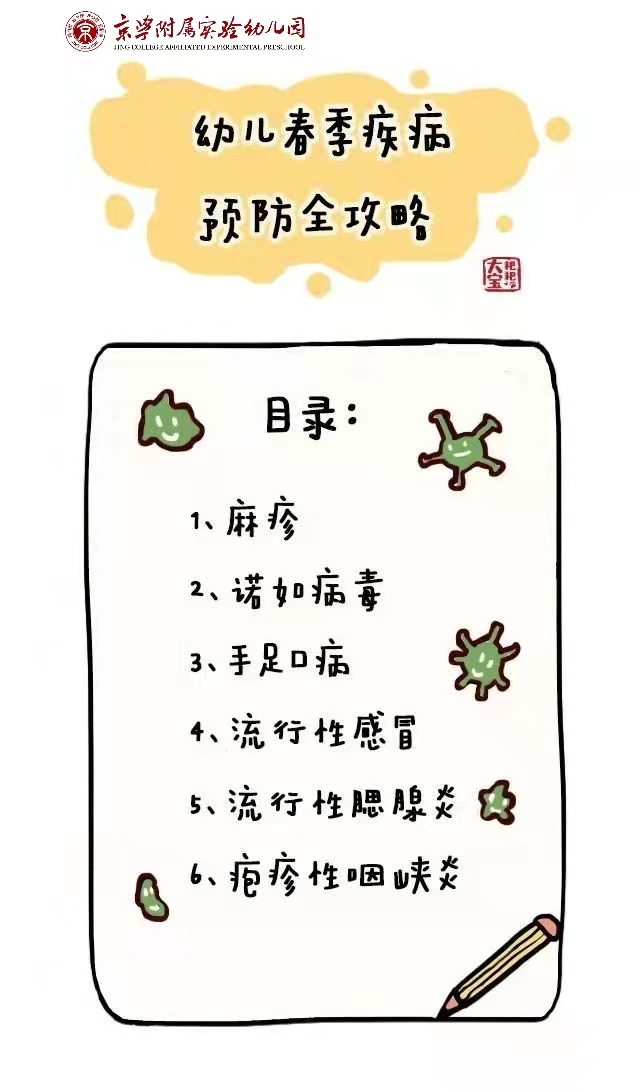 京学附属实验幼儿园
JING COLLEGE AFFILIATED EXPERIMENTAL PRESCHOOL
幼儿春季疾病
预防全攻略
大宝
粑粑
目录：
1、麻疹
2、诺如病毒
3、手足口病
4、流行性感冒
5、流行性腮腺炎
6、疱疹性咽峡炎